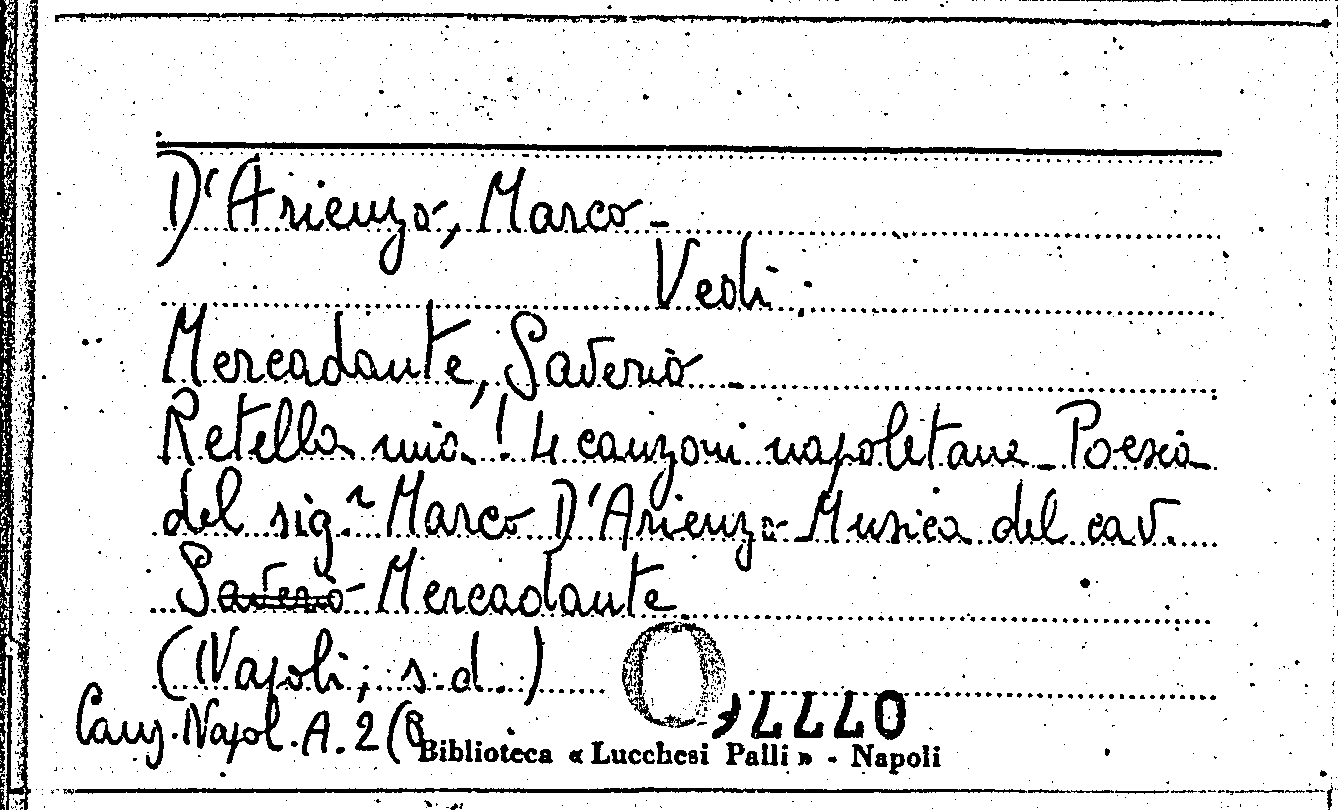 D'Arienzo, Marco -
Vedi:
Mercadante, Saverio -
Retella mia! 4 canzoni napoletane - Poesia
del sig.r Marco D'Arienzo - Musica del cav.
Saverio Mercadante
(Napoli; s.d.)
Canz. Napol. A. 2 (8
Biblioteca « Lucchesi Palli » - Napoli